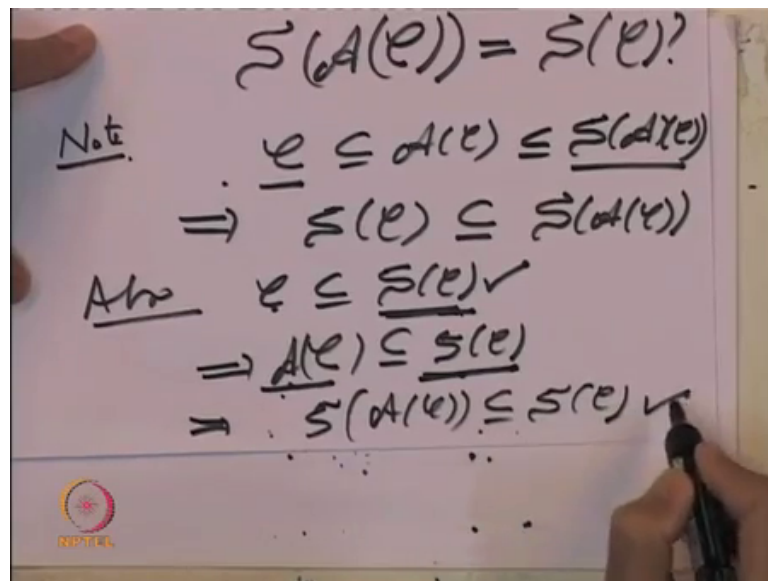 S(A(C)) = S(C)?
Note. C ⊆ A(C) ⊆ S(A(C))
⇒ S(C) ⊆ S(A(C))
Also C ⊆ S(C) ✓
⇒ A(C) ⊆ S(C)
⇒ S(A(C)) ⊆ S(C) ✓
NPTEL